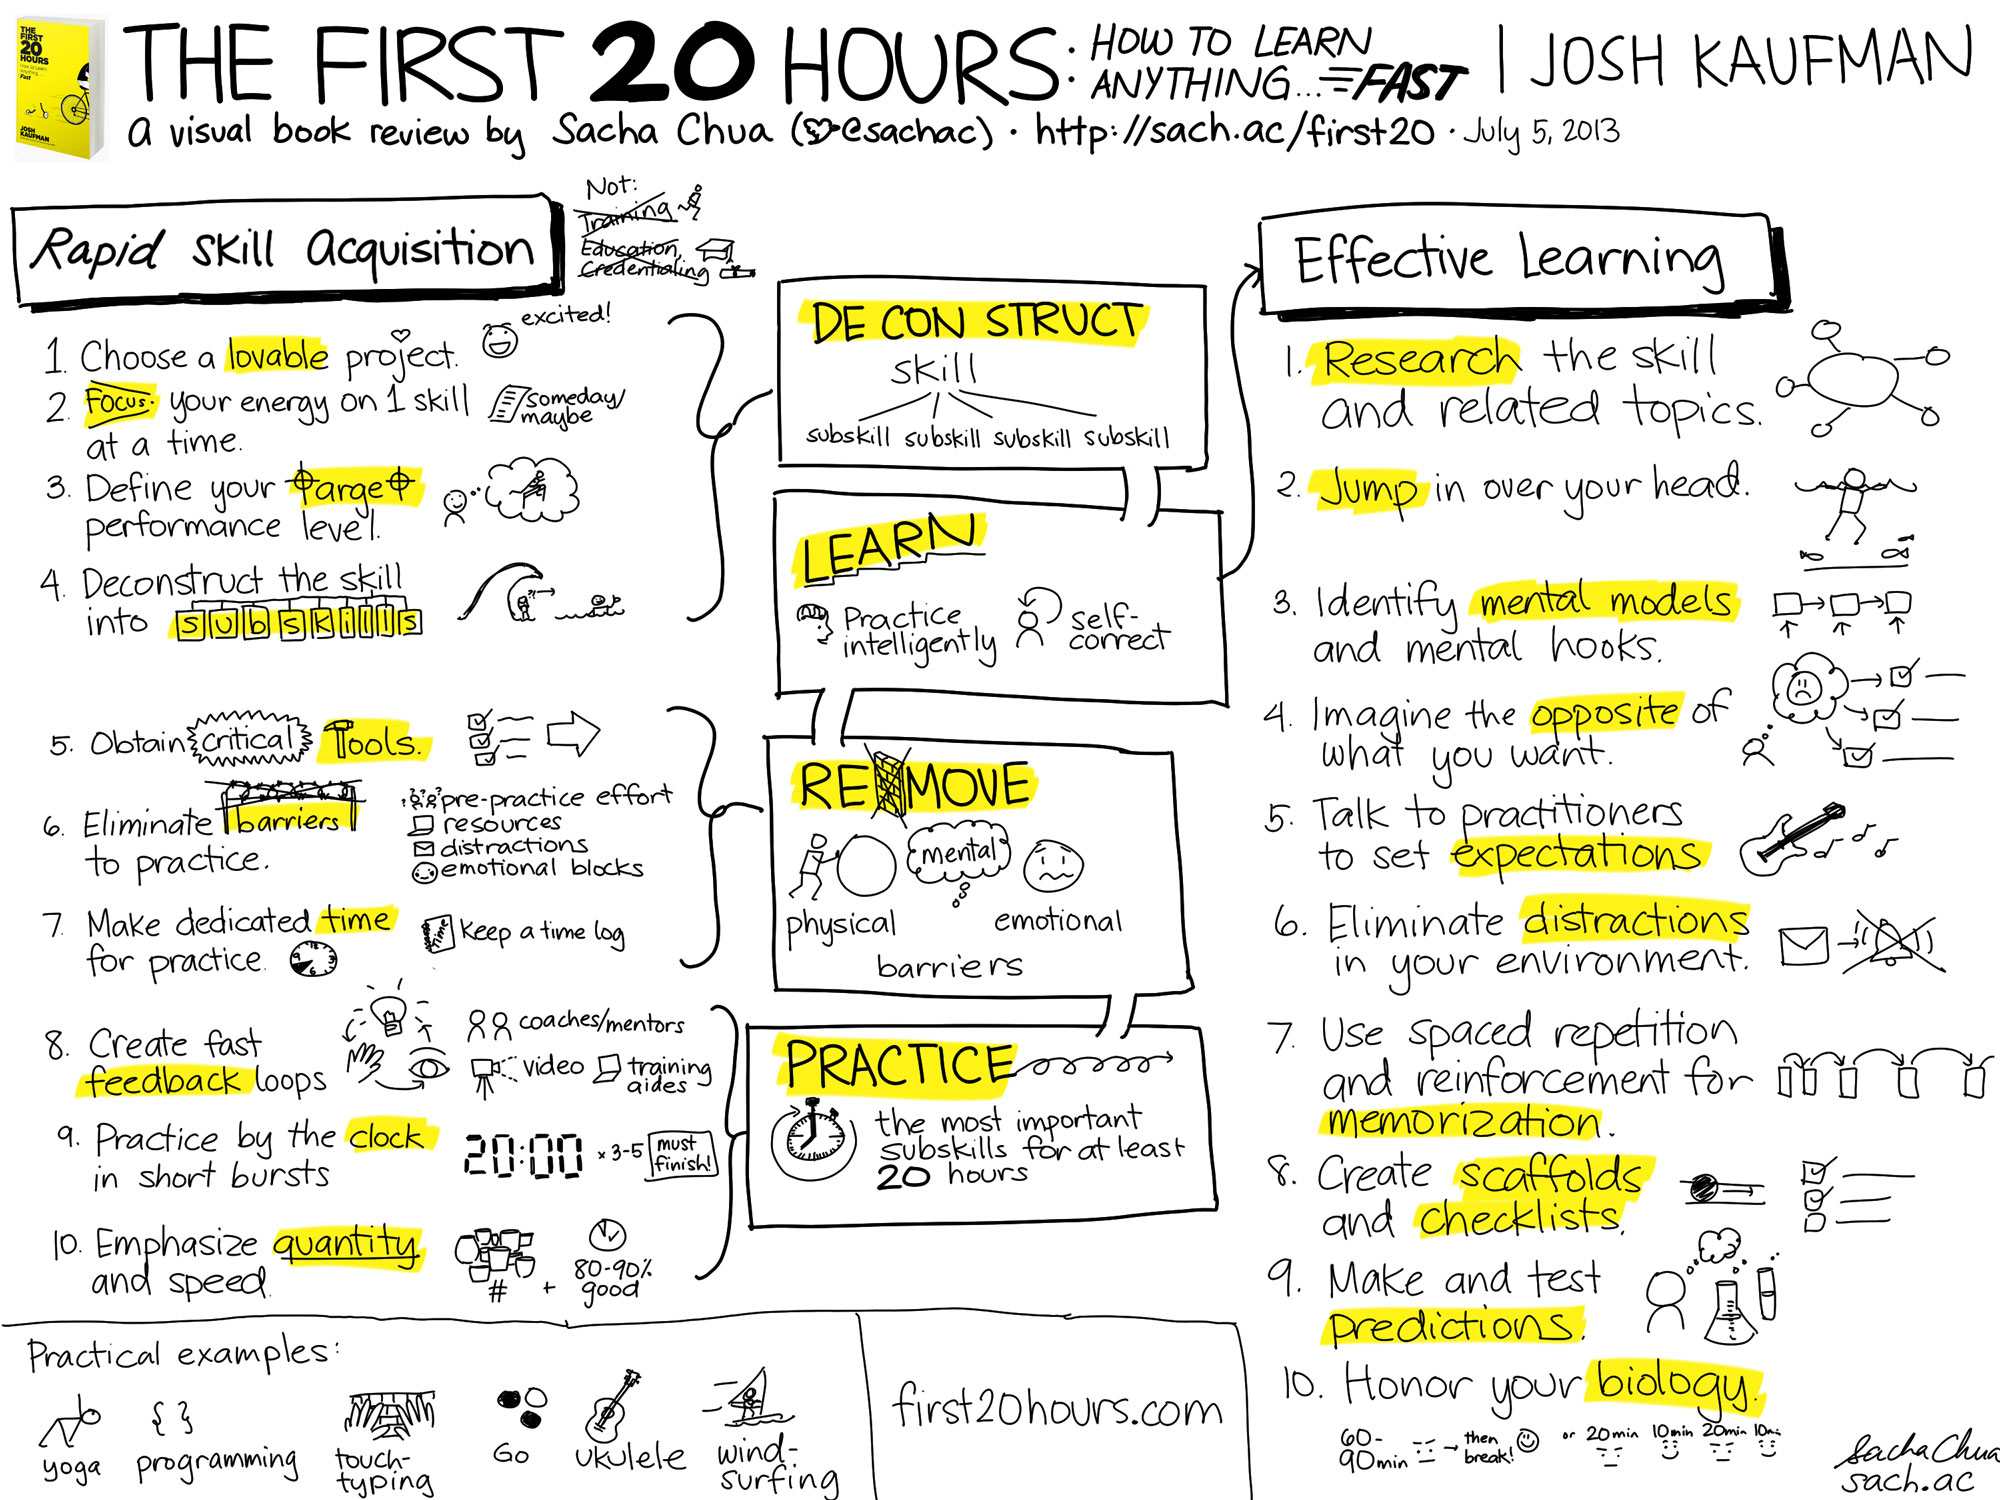 THE FIRST 20 HOURS
How to Learn Anything... Fast
JOSH KAUFMAN
THE FIRST 20 HOURS: HOW TO LEARN ANYTHING... FAST | JOSH KAUFMAN
a visual book review by Sacha Chua (@sachac) · http://sach.ac/first20 · July 5, 2013
Rapid Skill Acquisition
Not:
Training
Education,
Credentialing
1. Choose a lovable project.
excited!
2. Focus your energy on 1 skill
at a time.
someday/
maybe
3. Define your target
performance level.
4. Deconstruct the skill
into subskills
5. Obtain critical Tools.
6. Eliminate barriers
to practice.
pre-practice effort
resources
distractions
emotional blocks
7. Make dedicated time
for practice.
Time
Keep a time log
8. Create fast
feedback loops
coaches/mentors
video
training
aides
9. Practice by the clock
in short bursts
20:00 × 3-5
must
finish!
10. Emphasize quantity
and speed.
# + 80-90%
good
DECONSTRUCT
skill
subskill subskill subskill subskill
LEARN
Practice
intelligently
self-
correct
REMOVE
physical
mental
emotional
barriers
PRACTICE
the most important
subskills for at least
20 hours
Effective Learning
1. Research the skill
and related topics.
2. Jump in over your head.
3. Identify mental models
and mental hooks.
4. Imagine the opposite of
what you want.
5. Talk to practitioners
to set expectations
6. Eliminate distractions
in your environment.
7. Use spaced repetition
and reinforcement for
memorization.
8. Create scaffolds
and checklists.
9. Make and test
predictions.
10. Honor your biology.
60-
90min
then
break!
or 20min 10min 20min 10min
Practical examples:
yoga
programming
touch-
typing
Go
ukulele
wind-
surfing
first20hours.com
Sacha Chua
sach.ac